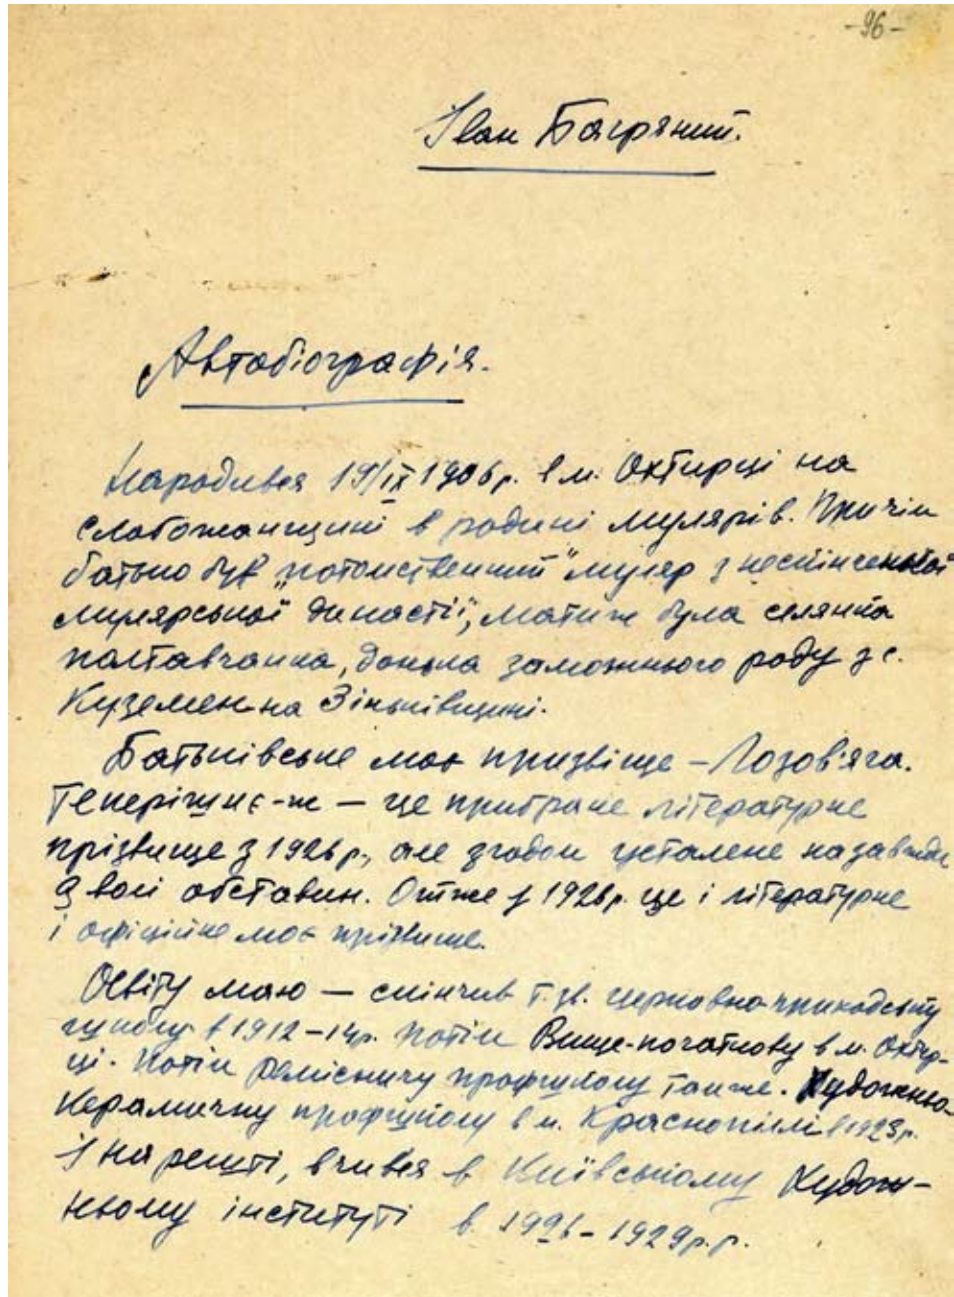 -96-
Іван Багряний.
Автобіографія.
Народився 19/ІХ 1906 р. в м. Охтирці на
Слобожанщині в родині мулярів. Причім
батько був „потомственний" муляр з нескінченної
мулярської династії, мати ж була селянка
полтавчанка, донька заможнього роду з с.
Куземен на Зіньківщині.
Батьківське моє призвіще – Лозов'яга.
Теперішнє-ж — це прибране літературне
прізвище з 1926 р., але згодом усталене назавжди
з волі обставин. Отже з 1926 р. це і літературне
і офіційне моє прізвище.
Освіту маю — скінчив т. зв. церковно-приходську
школу в 1912–14 р. Потім Вище-початкову в м. Охтир-
ці. Потім ремісничу профшколу там же. Художньо-
Керамичну профшколу в м. Краснопіллі в 1923 р.
І нарешті, вчився в Київському Худож-
ньому інституті в 1926 – 1929 р.р.